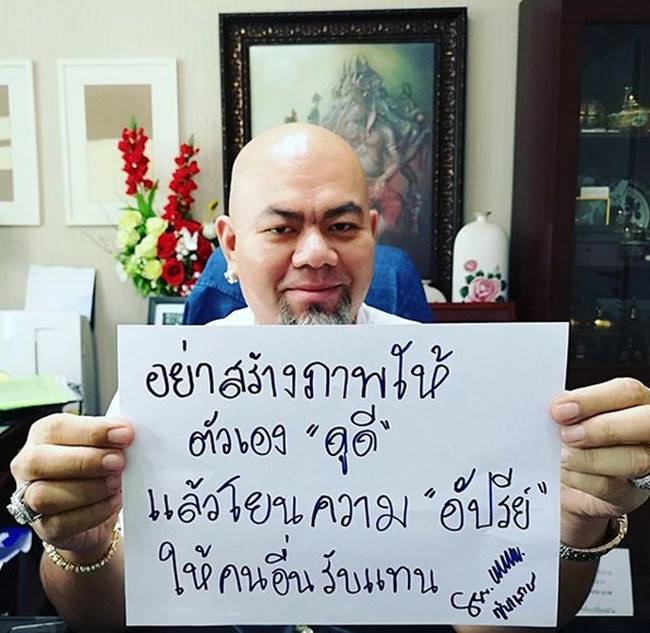 อย่าสร้างภาพให้
ตัวเอง "ดูดี"
แล้วโยนความ "อัปรีย์"
ให้คนอื่นรับแทน